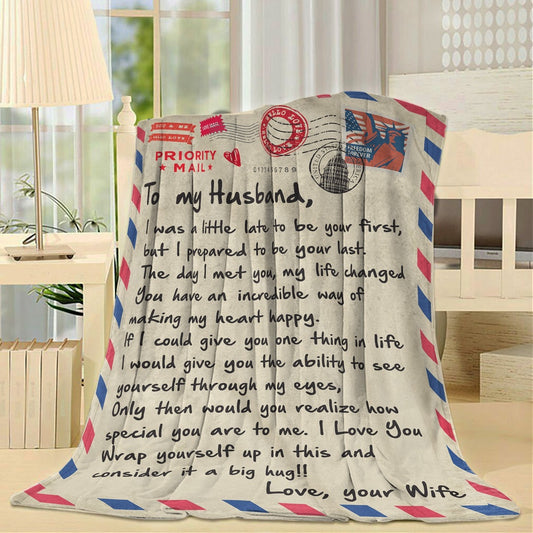 HELLO LOVE
PRIORITY
MAIL
0123456789
FREEDOM
FOREVER
To my Husband,
I was a little late to be your first,
but I prepared to be your last.
The day I met you, my life changed
You have an incredible way of
making my heart happy.
If I could give you one thing in life
I would give you the ability to see
yourself through my eyes,
Only then would you realize how
special you are to me. I Love You
Wrap yourself up in this and
consider it a big hug!!
Love, your Wife